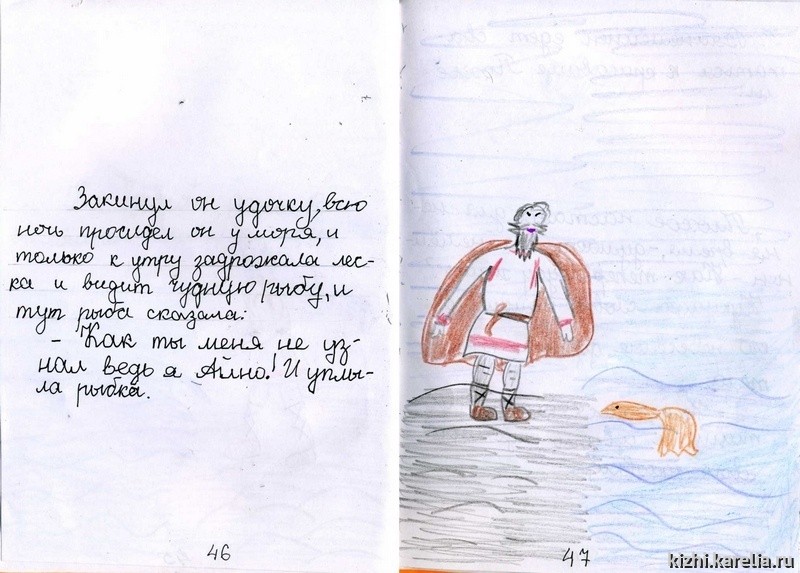 Закинул он удочку, всю
ночь просидел он у моря, и
только к утру задрожала лес-
ка и видит чудную рыбу, и
тут рыба сказала:
- Как ты меня не уз-
нал ведь я Айно! И уплы-
ла рыбка.
46
47
kizhi.karelia.ru